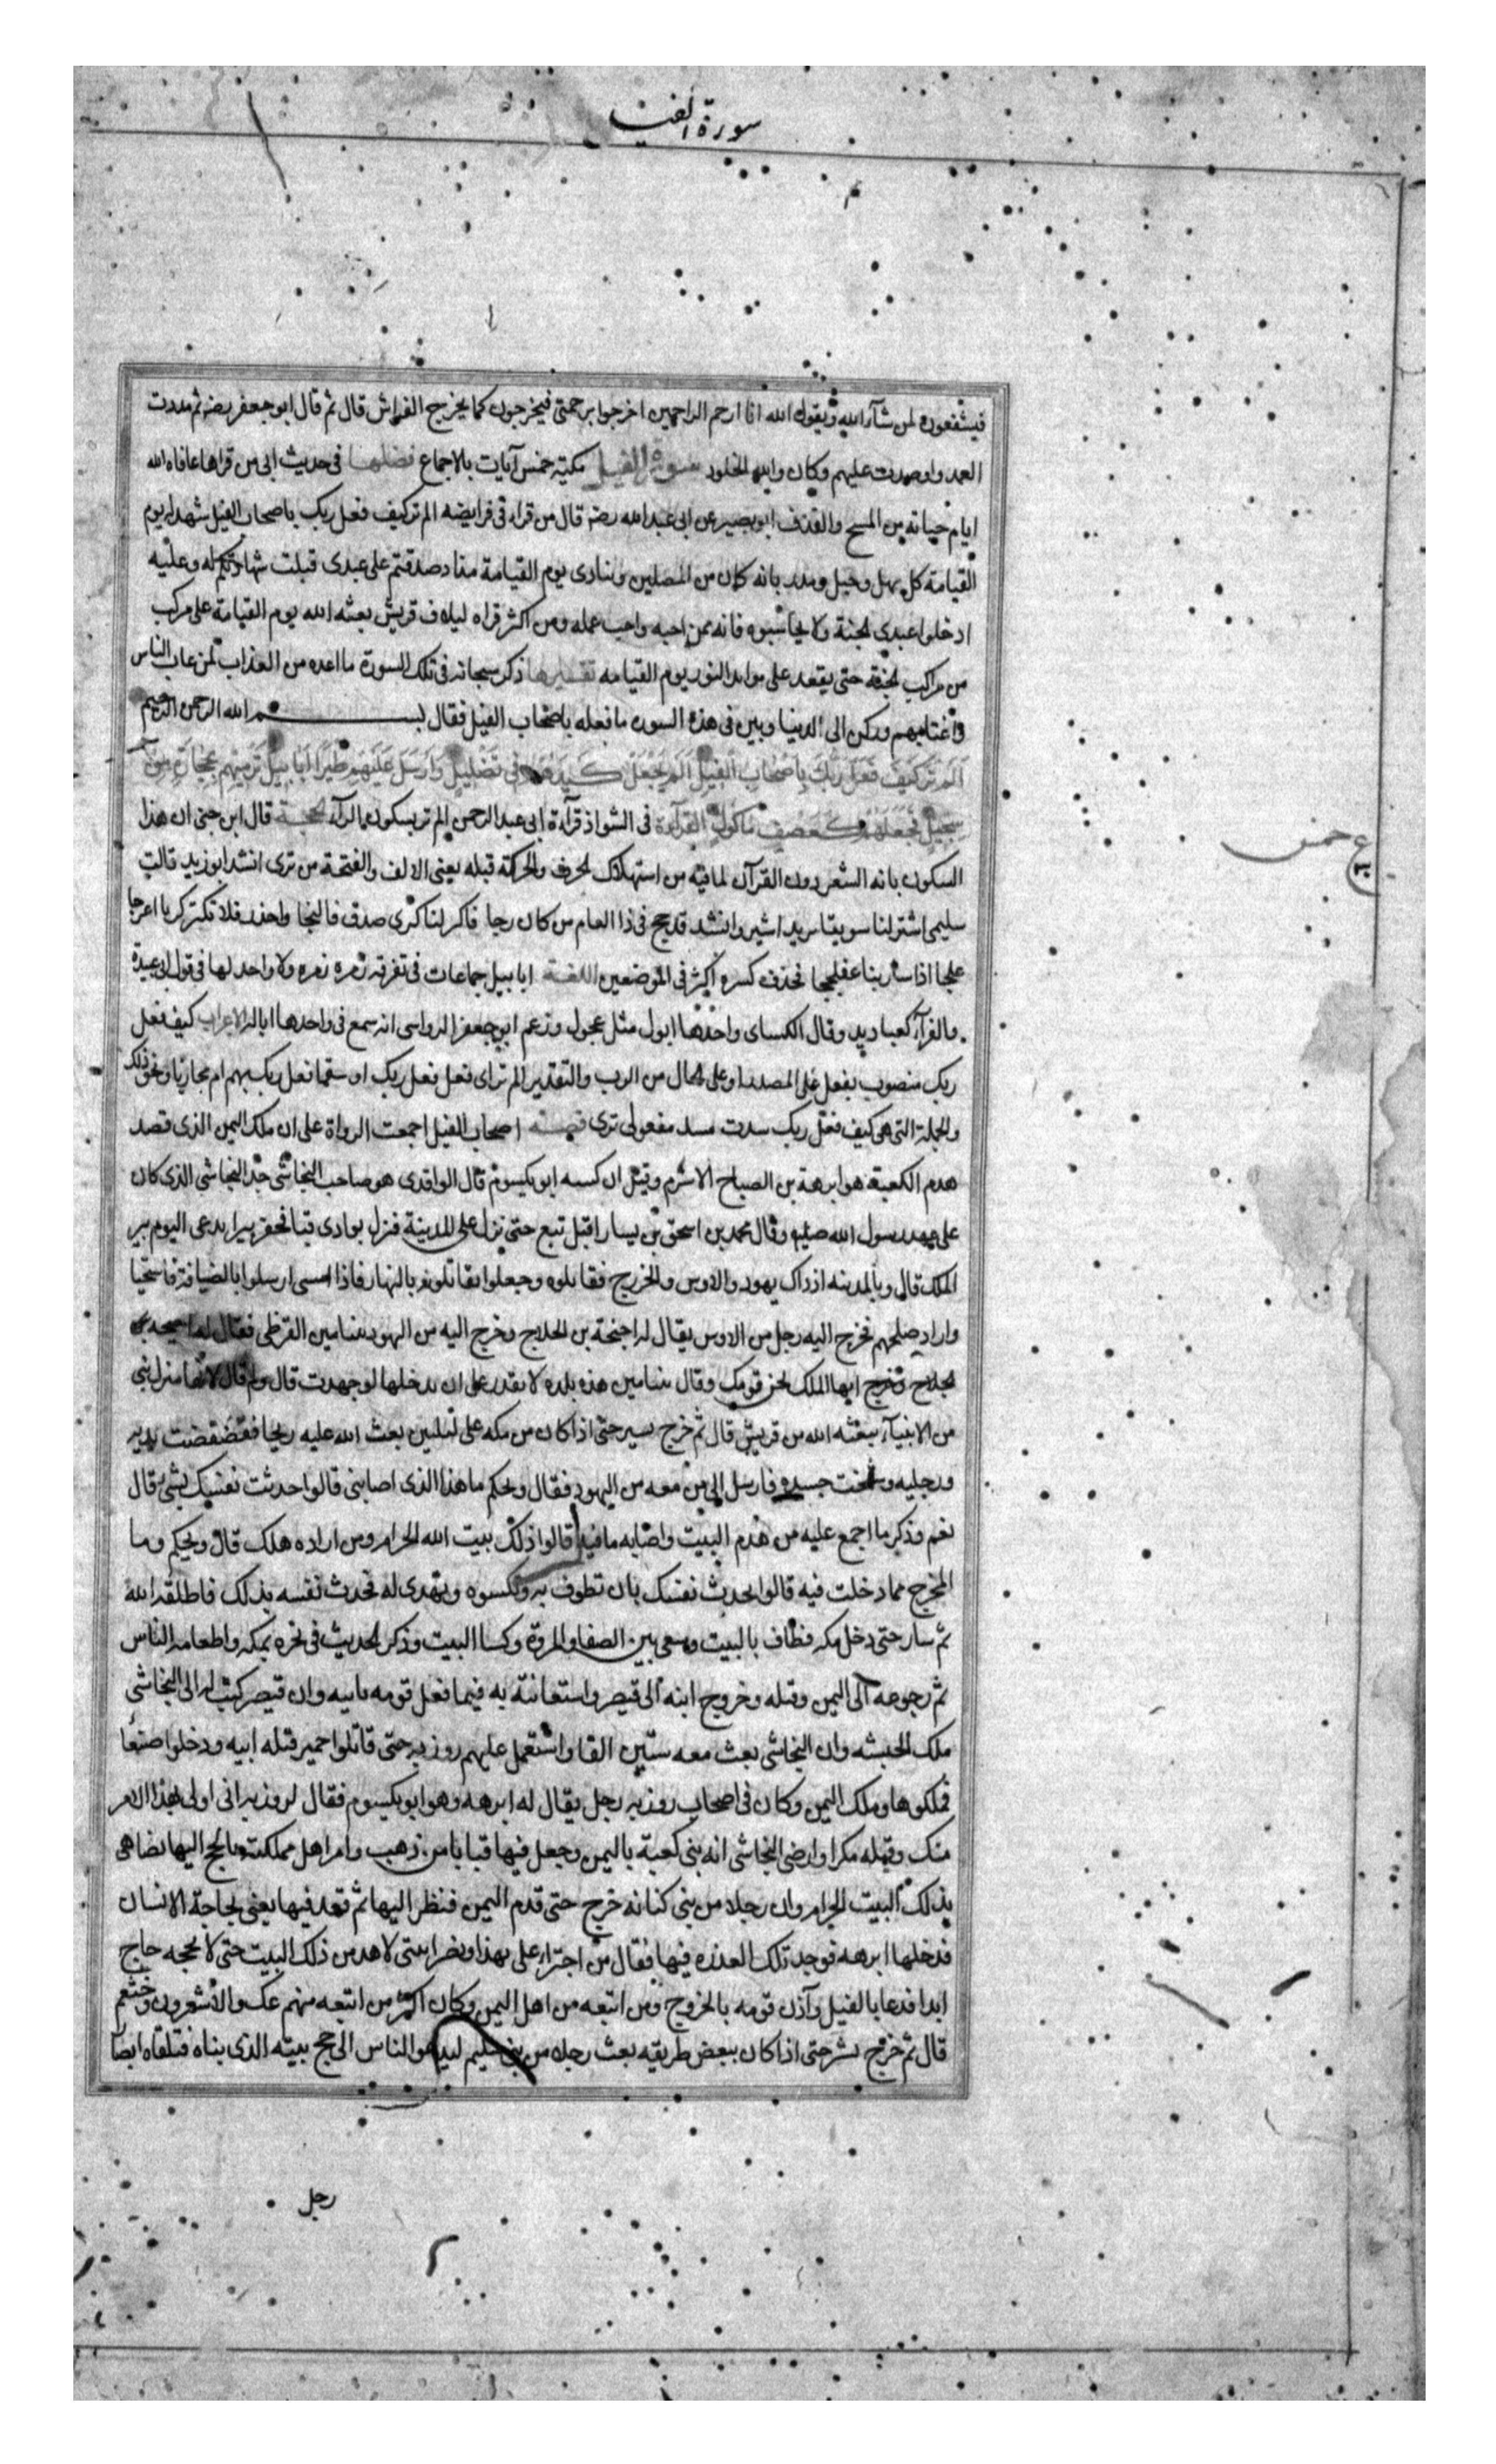 سورة الفيل
فيشفعون لمن شآء الله ويقول الله انا ارحم الراحمين اخرجوا برحمتى فيخرجون كما يخرج الفراش قال ثم قال ابو جعفر رضه ثم مددت
العمد واوصدت عليهم وكان والله الخلود سورة الفيل مكية خمس آيات بالاجماع فضلها فى حديث ابى من قراها عافاه الله
ايام حياته من المسخ والقذف ابو بصير عن ابى عبد الله رضه قال من قراء فى فرايضه الم تر كيف فعل ربك باصحاب الفيل شهد له يوم
القيامة كل سهل وجبل ومدر بانه كان من المصلين وينادى يوم القيامة مناد صدقتم على عبدى قبلت شهادتكم له وعليه
ادخلوا عبدي الجنة ولا تحاسبوه فانه ممن احبه واحب عمله ومن اكثر قراه ليلاف قريش بعثه الله يوم القيامة على مركب
من مراكب الجنة حتى يقعد على موايد النور يوم القيامه تفسيرها ذكر سبحانه فى تلك السورة ما اعده من العذاب لمن عاب الناس
واغتابهم وركن الى الدنيا وبين فى هذه السوره ما فعله باصحاب الفيل فقال بسم الله الرحمن الرحيم
اَلَمْ تَرَ كَيْفَ فَعَلَ رَبُّكَ بِاَصْحَابِ الْفِيلِ اَلَمْ يَجْعَلْ كَيْدَهُمْ فِى تَضْلِيلٍ وَاَرْسَلَ عَلَيْهِمْ طَيْرًا اَبَابِيلَ تَرْمِيْهِمْ بِحِجَارَةٍ مِنْ
سِجِّيلٍ فَجَعَلَهُمْ كَعَصْفٍ مَاْكُولٍ القرآءة فى الشواذ قرآءة ابى عبد الرحمن الم تر بسكون الرآء الحجة قال ابن جنى ان هذا
السكون بانه الشعر دون القرآن لما فيه من استهلاك الحرف والحركة قبله يعنى الالف والفتحة من ترى انشد ابو زيد قالت
سليمى اشتر لنا سويقا يريد اشتر وانشد قد حج فى ذا العام من كان رجا فاكر لنا كرى صدق فالنجا واحذر فلا تكتر كريا اعرجا
علجا اذا سار بنا عفنججا فحذف كسره اكثر فى الموضعين اللغة ابابيل جماعات فى تفرقه زمره زمره ولا واحد لها فى قول ابى عبيدة
والفرآء كعباديد وقال الكساى واحدها ابول مثل عجول وزعم ابو جعفر الرواسى انه سمع فى واحدها ابالة الاعراب كيف فعل
ربك منصوب بفعل على المصدر او على الحال من الرب والتقدير الم تر اى فعل فعل ربك او منتقما فعل ربك بهم ام مجازيا ونحو ذلك
والجملة التى هى كيف فعل ربك سدت مسد مفعولى ترى قصة اصحاب الفيل اجمعت الرواة على ان ملك اليمن الذى قصد
هدم الكعبة هو ابرهة بن الصباح الاشرم وقيل ان كنيته ابو يكسوم قال الواقدى هو صاحب النجاشى جد النجاشى الذى كان
على عهد رسول الله صلعم وقال محمد بن اسحق بن يسار اقبل تبع حتى نزل على المدينة فنزل بوادى قبا فحفر بيرا يدعى اليوم بير
الملك قال وبالمدينه اذ ذاك يهود والاوس والخزرج فقاتلوه وجعلوا يقاتلونه بالنهار فاذا امسى ارسلوا بالضيافة فاستحيا
واراد صلحهم فخرج اليه رجل من الاوس يقال له احيحة بن الجلاح وخرج اليه من اليهود بنيامين القرظى فقال له احيحة بن
الجلاح وخرج ايها الملك نحن قومك وقال بنيامين هذه بلده لا تقدر على ان تدخلها لو جهدت قال ولم قال لانها منزل نبى
من الانبيآء يبعثه الله من قريش قال ثم خرج يسير حتى اذا كان من مكه على ليلتين بعث الله عليه ريحا فقضقضت يديه
ورجليه وشنجت جسده فارسل الى من معه من اليهود فقال ويحكم ما هذا الذى اصابنى قالوا حدثت نفسك بشى قال
نعم وذكر ما اجمع عليه من هدم البيت واصابه ما فيه قالوا ذلك بيت الله الحرام ومن اراده هلك قال ويحكم وما
المخرج مما دخلت فيه قالوا تحدث نفسك بان تطوف به وتكسوه وتهدى له فحدث نفسه بذلك فاطلقه الله
ثم سار حتى دخل مكه فطاف بالبيت وسعى بين الصفا والمروة وكسا البيت وذكر الحديث فى نحره بمكه واطعامه الناس
ثم رجوعه الى اليمن وقتله وخروج ابنه الى قيصر واستعانته به فيما فعل قومه بابيه وان قيصر كتب له الى النجاشى
ملك الحبشه وان النجاشى بعث معه ستين الفا واستعمل عليهم روزبه حتى قاتلوا حمير قتله ابيه ودخلوا صنعا
فملكوها وملك اليمن وكان فى اصحاب روزبه رجل يقال له ابرهه وهو ابو يكسوم فقال لروزبه انى اولى بهذا الامر
منك وقتله مكرا وارضى النجاشى انه بنى كعبة باليمن وجعل فيها قبابا من ذهب وامر اهل مملكته بالحج اليها يضاهى
بذلك البيت الحرام وان رجلا من بنى كنانه خرج حتى قدم اليمن فنظر اليها ثم قعد فيها يعنى لحاجة الانسان
فدخلها ابرهه فوجد تلك العذره فيها فقال من اجترا على بهذا ونصرانيتى لاهدمن ذلك البيت حتى لا يحجه حاج
ابدا فدعا بالفيل وآذن قومه بالخروج ومن اتبعه من اهل اليمن وكان اكثر من اتبعه منهم عك والاشعرون وخثعم
قال ثم خرج يسير حتى اذا كان ببعض طريقه بعث رجلا من بنى سليم ليدعو الناس الى حج بيته الذى بناه فتلقاه ايضا
رجل